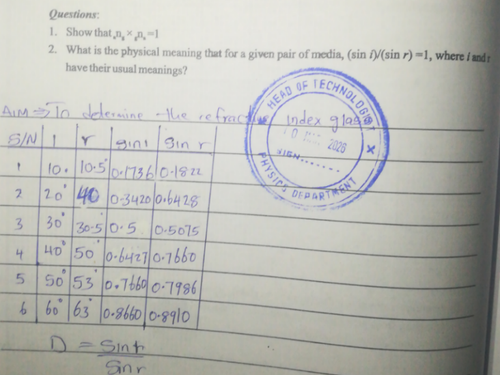 Questions:
1. Show that ₐng × gnₐ =1
2. What is the physical meaning that for a given pair of media, (sin i)/(sin r) =1, where i and r
have their usual meanings?
HEAD OF TECHNOLOGIST
2026
SIGN.......
PHYSICS DEPARTMENT
AIM → To determine the refractive index glass
S/N i r sin i sin r
1 10° 10.5° 0.1736 0.1822
2 20° 40 0.3420 0.6428
3 30° 30.5° 0.5 0.5075
4 40° 50° 0.6427 0.7660
5 50° 53° 0.7660 0.7986
6 60° 63° 0.8660 0.8910
D = Sin i
Sin r